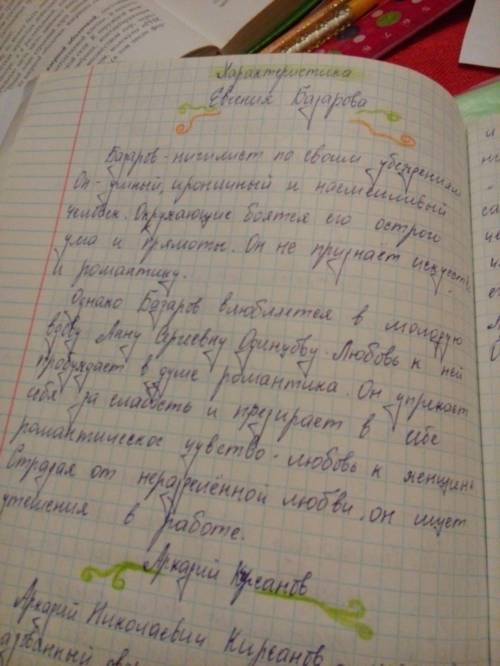 Характеристика
Евгения Базарова
Базаров - нигилист по своим убеждениям.
Он - умный, ироничный и насмешливый
человек. Окружающие боятся его острого
ума и прямоты. Он не признаёт искусств
и романтику.
Однако Базаров влюбляется в молодую
вдову Анну Сергеевну Одинцову. Любовь к ней
пробуждает в душе романтика. Он упрекает
себя за слабость и презирает в себе
романтическое чувство - любовь к женщине
Страдая от неразделённой любви, он ищет
утешения в работе.
Аркадий Кирсанов
Аркадий Николаевич Кирсанов